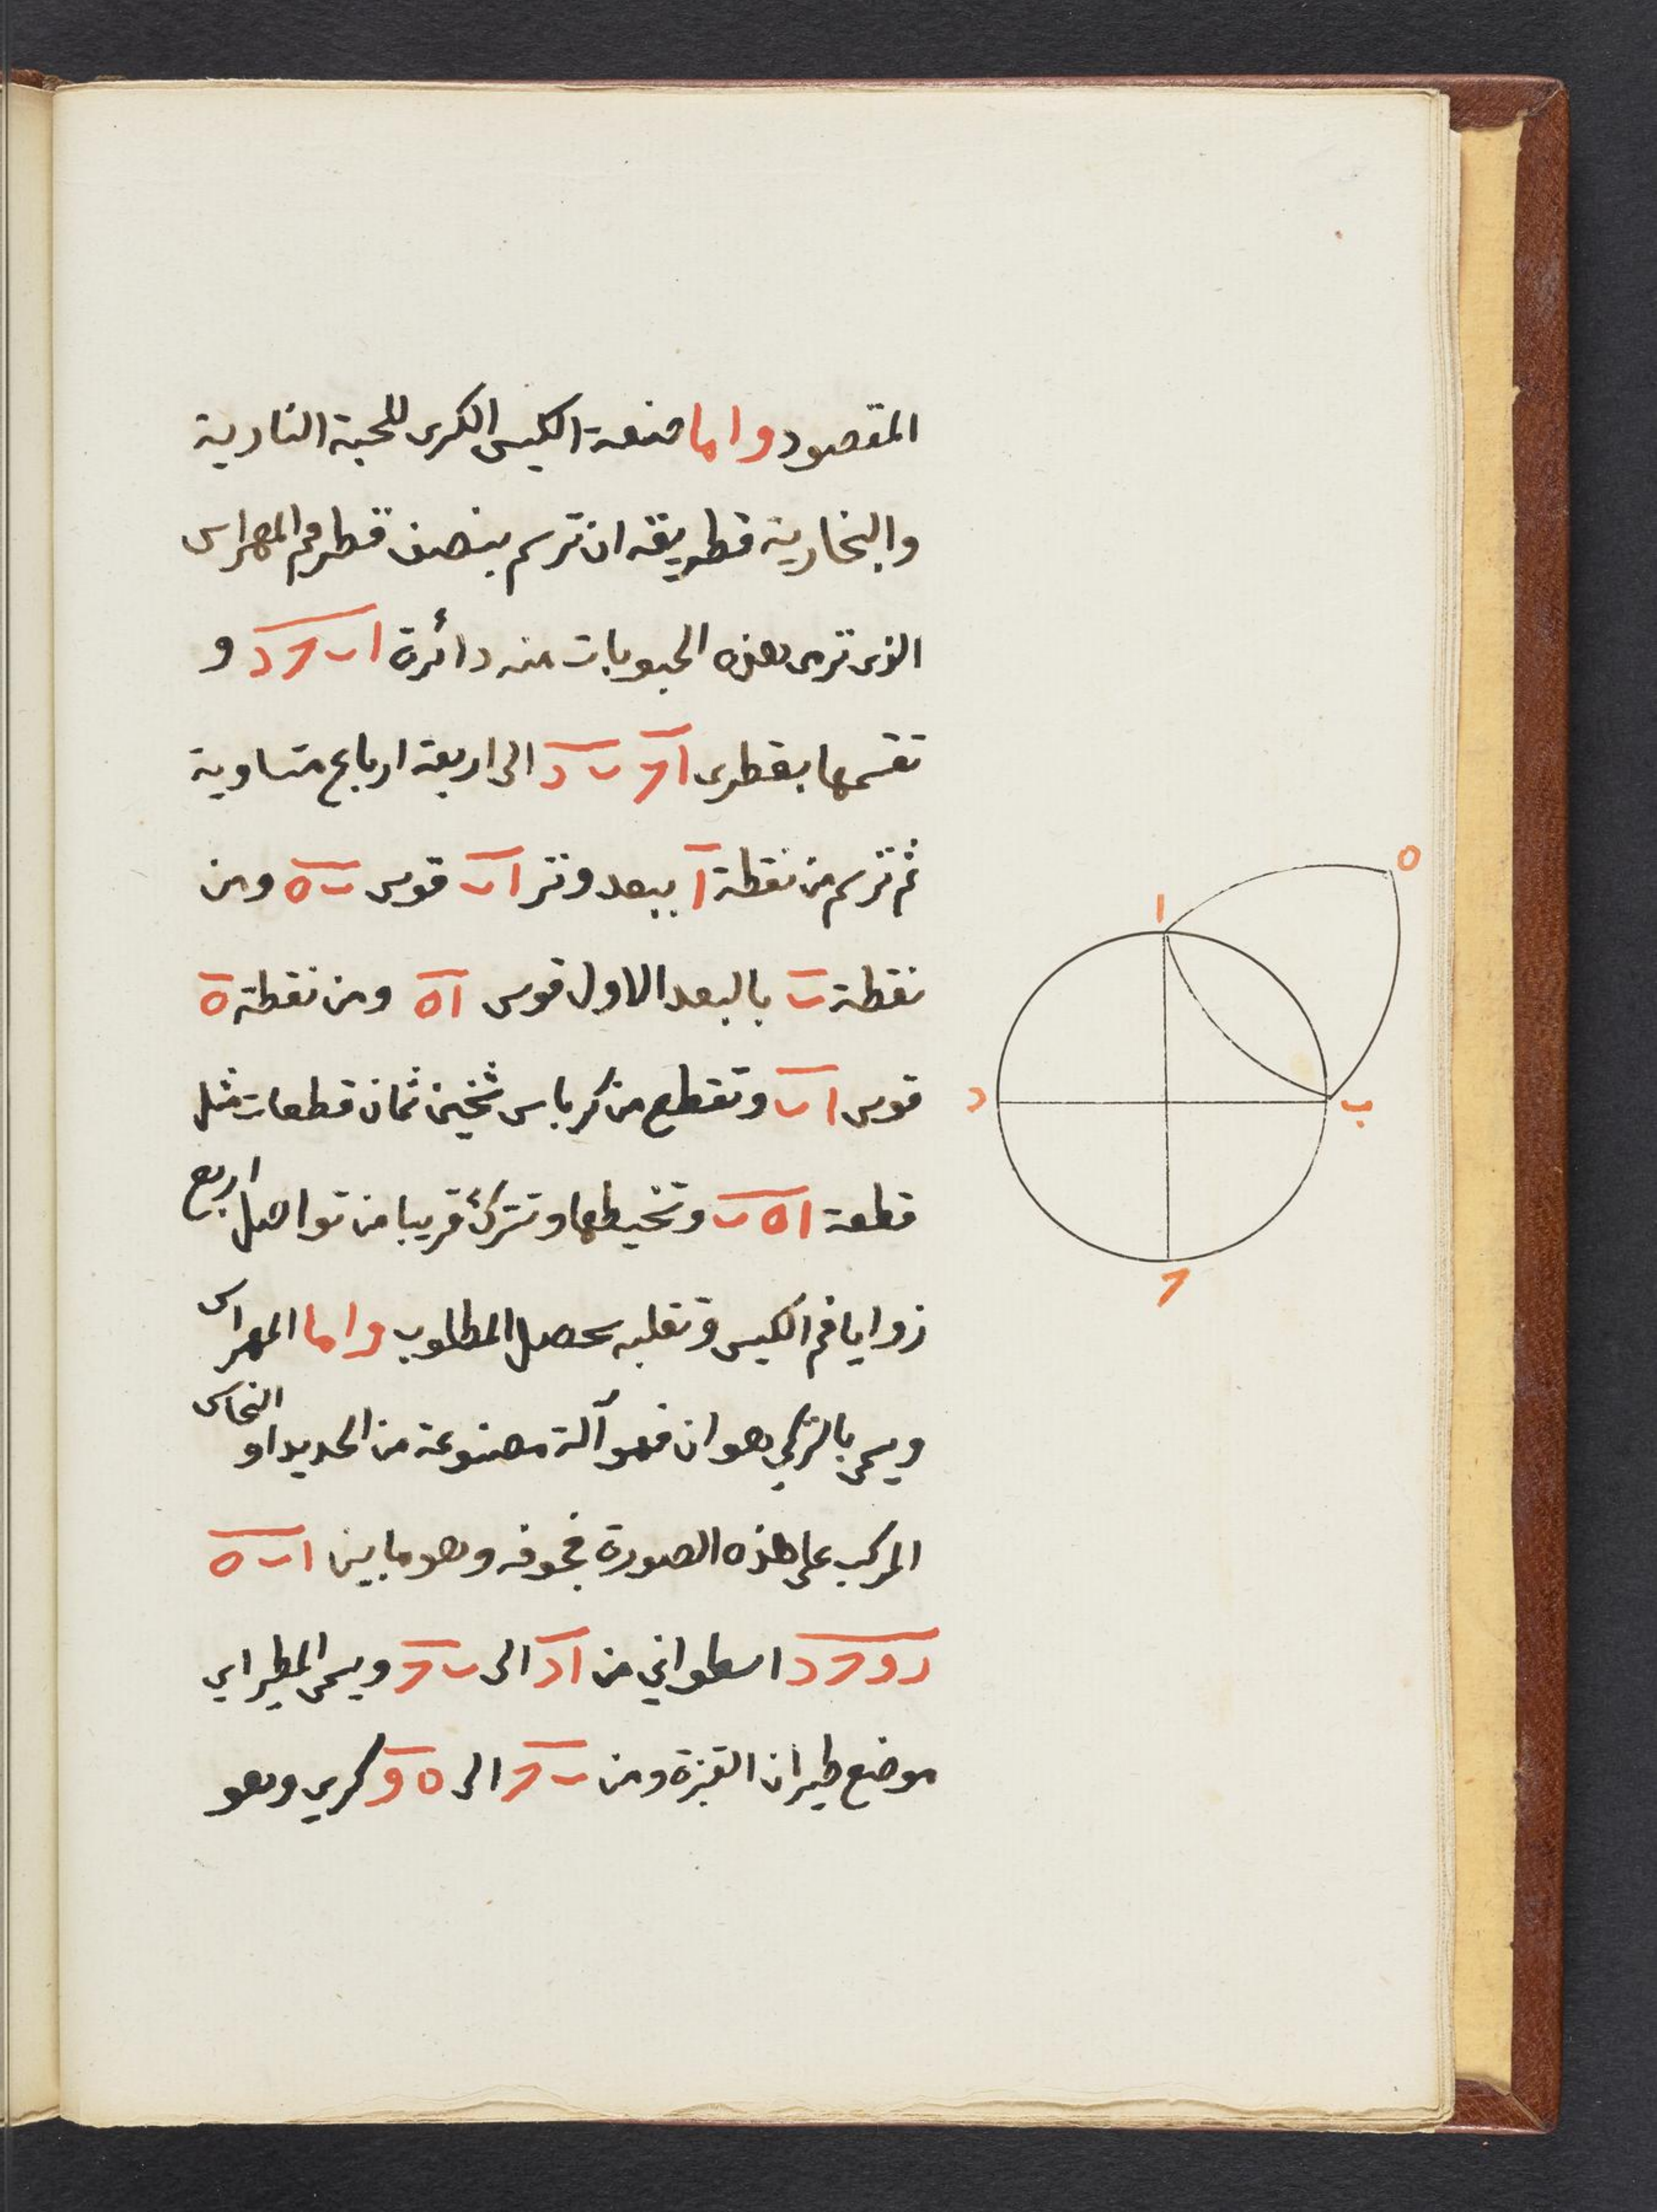 المقصود واما صنعة الكيس الكرى للحبة النارية
والبخارية فطريقه ان ترسم بنصف قطر فم المهراس
الذى ترمى بهذه الحبوبات منه دائرة ا ب ح د و
تقسمها بقطرى ا ح ب د الى اربعة ارباع متساوية
ثم ترسم من نقطة ا ببعد وتر ا ب قوس ب ه ومن
نقطة ب بالبعد الاول قوس ا ه ومن نقطة ه
قوس ا ب وتقطع من كرباس ثخين ثمان قطعات مثل
قطعة ا ه ب وتخيطها وتترك قريبا من تواصل اربع
زوايا فم الكيس وتقلبه يحصل المطلوب واما المهراس
ويسمى بالتركي هوان فهو آلة مصنوعة من الحديد او النحاس
المركب على هذه الصورة فجوفه وهو ما بين ا ب ه
ر و ح د اسطواني من ا د الى ب ح ويسمى المطير اى
موضع طيران القبزة ومن ب ح الى ه و كري وهو
ا
ه
ب
د
ح